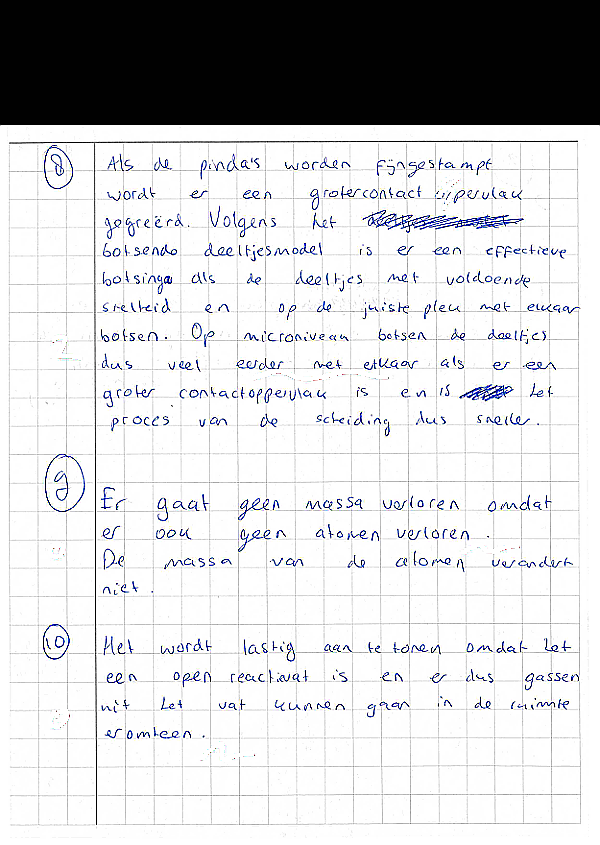 8 Als de pinda's worden fijngestampt
wordt er een groter contact oppervlak
gegreërd. Volgens het
botsendo deeltjesmodel is er een effectieve
botsinga als de deeltjes met voldoende
snelheid en op de juiste plek met elkaar
botsen. Op microniveau botsen de deeltjes
dus veel eerder met elkaar als er een
groter contactoppervlak is en is het
proces van de scheiding dus sneller.
9 Er gaat geen massa verloren omdat
er ook geen atomen verloren.
De massa van de atomen verandert
niet.
10 Het wordt lastig aan te tonen omdat het
een open reactievat is en er dus gassen
uit het vat kunnen gaan in de ruimte
eromheen.